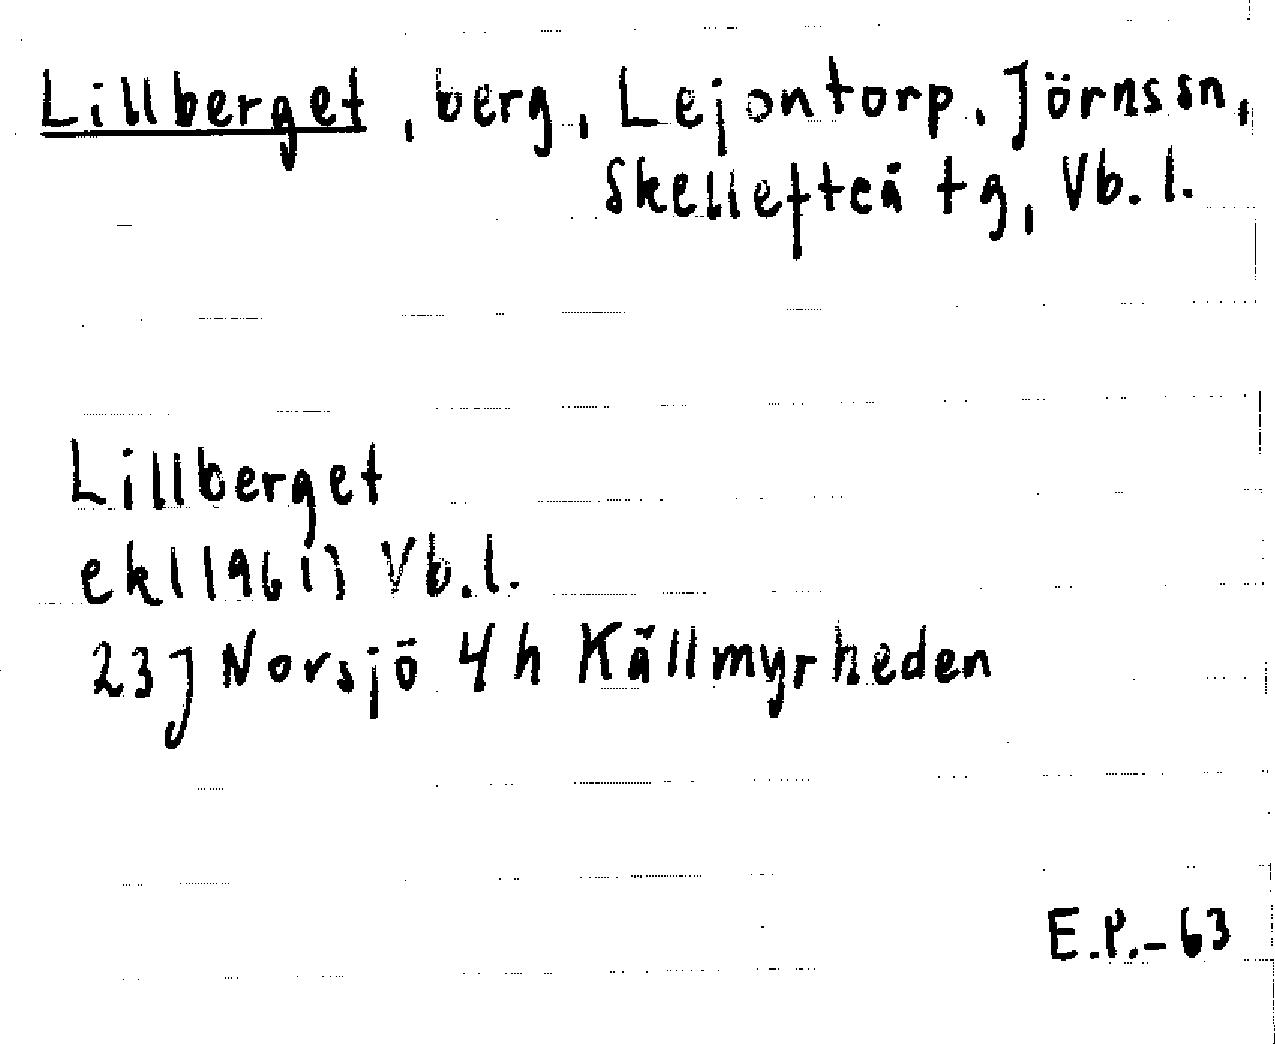 Lillberget, berg, Lejontorp, Jörnssn,
Skellefteå tg, Vb. l.
Lillberget
ekl 1961) Vb.l.
23J Norsjö 4h Källmyrheden
E.P.-63